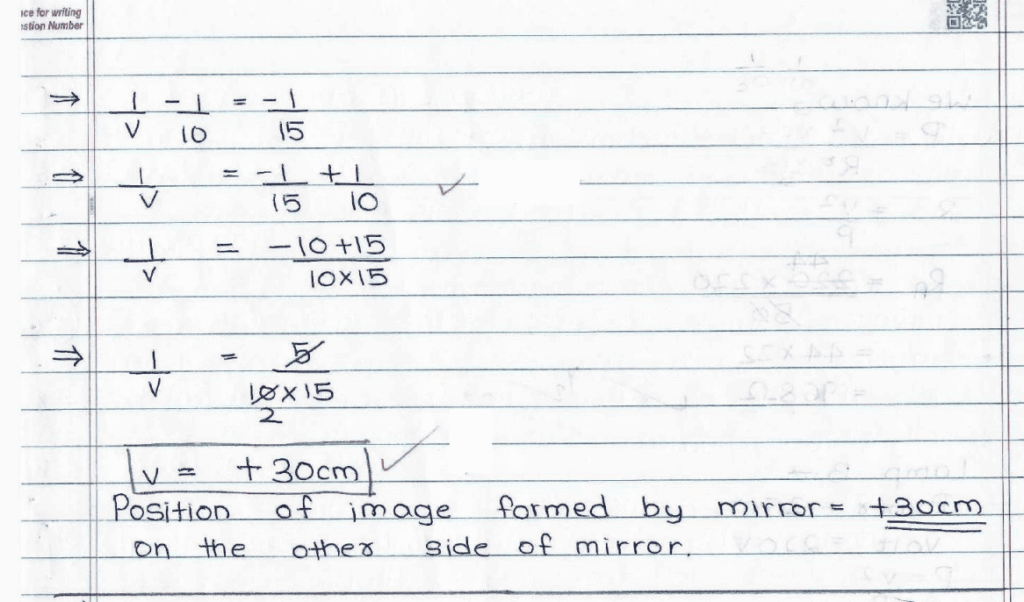 ace for writing
stion Number
⇒ 1/v - 1/10 = -1/15
⇒ 1/v = -1/15 + 1/10 ✓
⇒ 1/v = (-10+15)/(10×15)
⇒ 1/v = 5/(10×15)
2
v = +30cm ✓
Position of image formed by mirror = +30cm
on the other side of mirror.